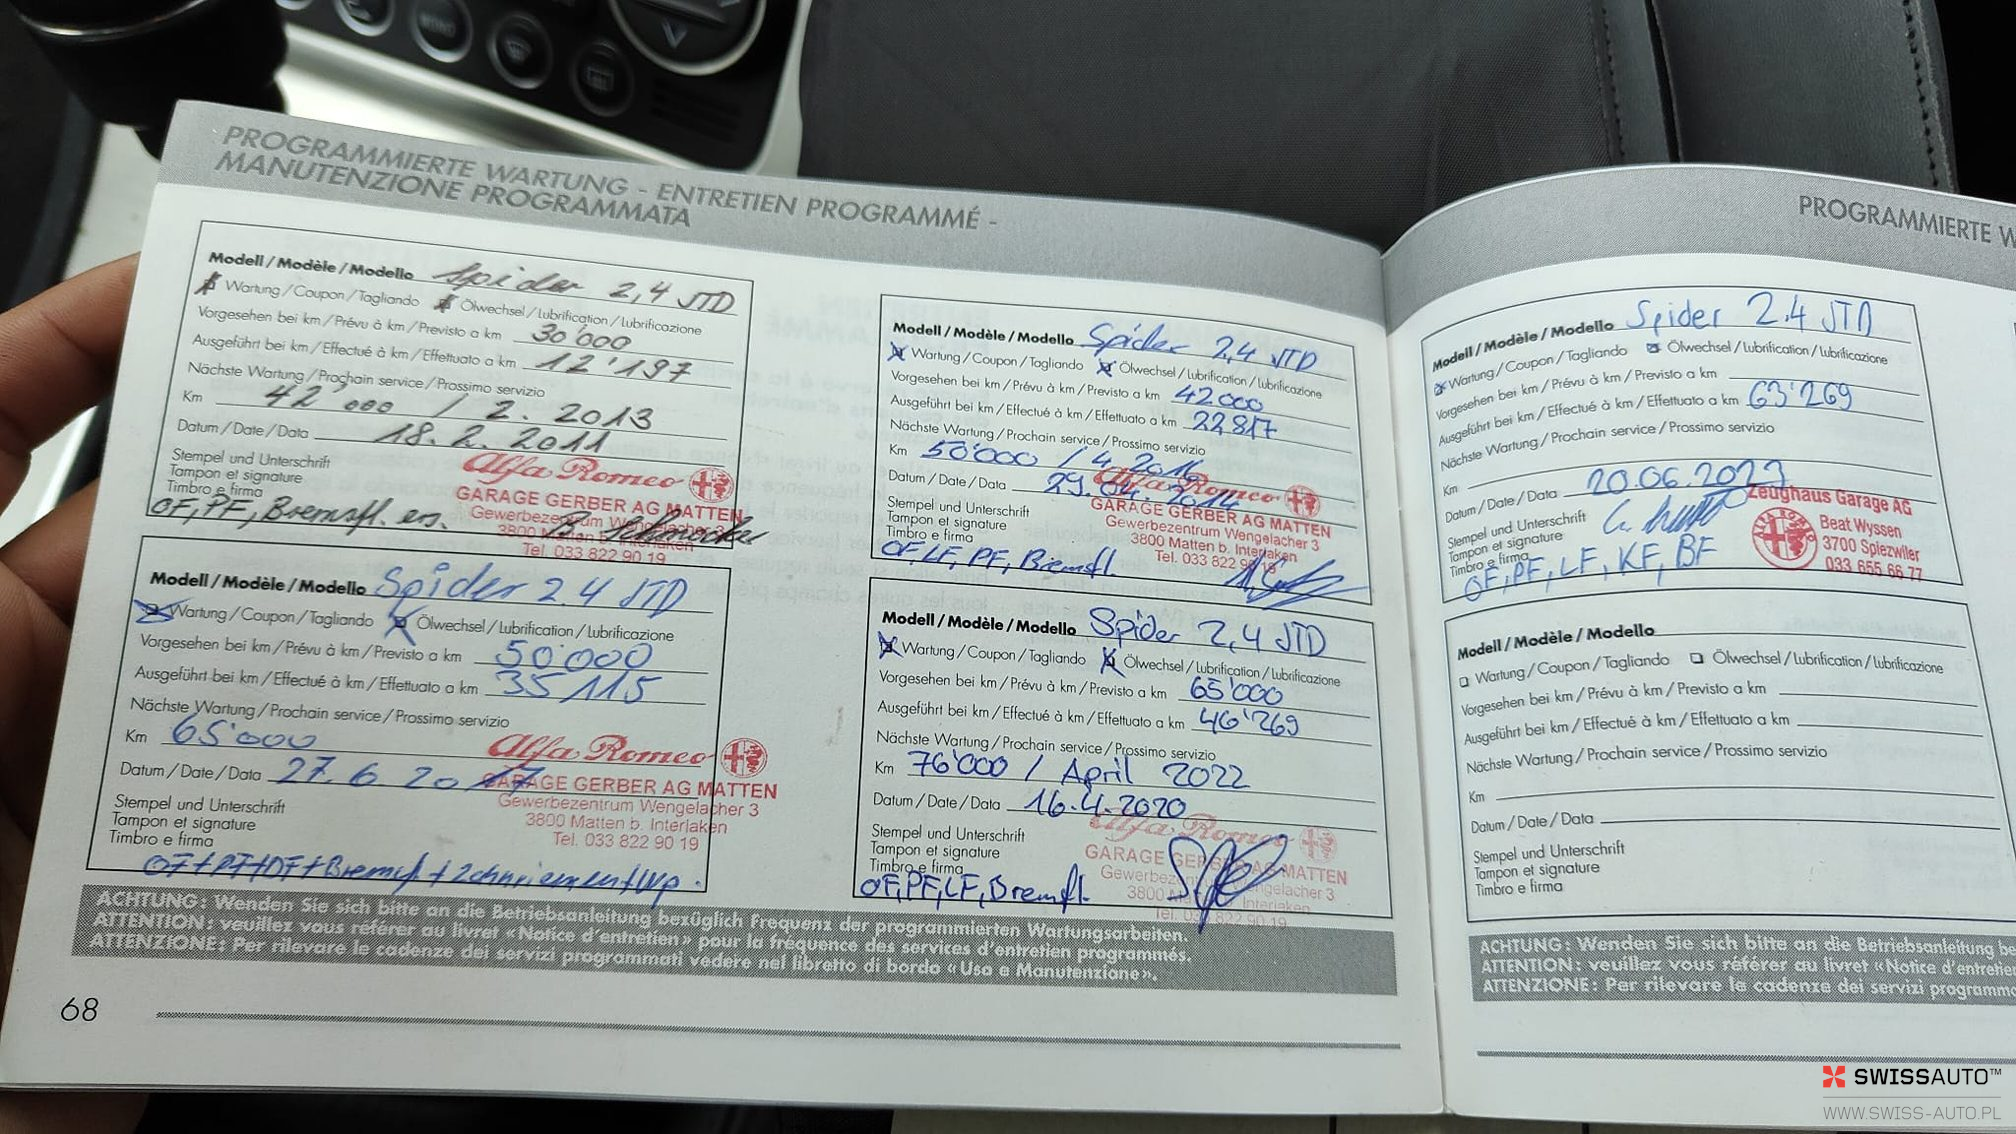 PROGRAMMIERTE WARTUNG - ENTRETIEN PROGRAMMÉ -
MANUTENZIONE PROGRAMMATA
Modell / Modèle / Modello Spider 2,4 JTD
Wartung / Coupon / Tagliando Ölwechsel / Lubrification / Lubrificazione
Vorgesehen bei km / Prévu à km / Previsto a km 30'000
Ausgeführt bei km / Effectué à km / Effettuato a km 12'197
Nächste Wartung / Prochain service / Prossimo servizio
Km 42'000 / 2. 2013
Datum / Date / Data 18. 2. 2011
Stempel und Unterschrift
Tampon et signature
Timbro e firma
OF, PF, Bremsfl. ers.
Alfa Romeo
GARAGE GERBER AG MATTEN
Gewerbezentrum Wengelacher 3
3800 Matten b. Interlaken
Tel. 033 822 90 19
Modell / Modèle / Modello Spider 2.4 JTD
Wartung / Coupon / Tagliando Ölwechsel / Lubrification / Lubrificazione
Vorgesehen bei km / Prévu à km / Previsto a km 50'000
Ausgeführt bei km / Effectué à km / Effettuato a km 35'115
Nächste Wartung / Prochain service / Prossimo servizio
Km 65'000
Datum / Date / Data 27. 6. 2017
Stempel und Unterschrift
Tampon et signature
Timbro e firma
Alfa Romeo
GARAGE GERBER AG MATTEN
Gewerbezentrum Wengelacher 3
3800 Matten b. Interlaken
Tel. 033 822 90 19
Modell / Modèle / Modello Spider 2,4 JTD
Wartung / Coupon / Tagliando Ölwechsel / Lubrification / Lubrificazione
Vorgesehen bei km / Prévu à km / Previsto a km 42000
Ausgeführt bei km / Effectué à km / Effettuato a km 22817
Nächste Wartung / Prochain service / Prossimo servizio
Km 50'000 / 4. 2016
Datum / Date / Data 29. 04. 2014
Stempel und Unterschrift
Tampon et signature
Timbro e firma
OF, LF, PF, Bremsfl.
Alfa Romeo
GARAGE GERBER AG MATTEN
Gewerbezentrum Wengelacher 3
3800 Matten b. Interlaken
Tel. 033 822 90 19
Modell / Modèle / Modello Spider 2,4 JTD
Wartung / Coupon / Tagliando Ölwechsel / Lubrification / Lubrificazione
Vorgesehen bei km / Prévu à km / Previsto a km 65'000
Ausgeführt bei km / Effectué à km / Effettuato a km 46'269
Nächste Wartung / Prochain service / Prossimo servizio
Km 76'000 / April 2022
Datum / Date / Data 16.4.2020
Stempel und Unterschrift
Tampon et signature
Timbro e firma
OF, PF, LF, Bremsfl.
Alfa Romeo
GARAGE GERBER AG MATTEN
Gewerbezentrum Wengelacher 3
3800 Matten b. Interlaken
Tel. 033 822 90 19
ACHTUNG: Wenden Sie sich bitte an die Betriebsanleitung bezüglich Frequenz der programmierten Wartungsarbeiten.
ATTENTION: veuillez vous référer au livret «Notice d'entretien» pour la fréquence des services d'entretien programmés.
ATTENZIONE: Per rilevare le cadenze dei servizi programmati vedere nel libretto di bordo «Uso e Manutenzione».
68
PROGRAMMIERTE W
Modell / Modèle / Modello Spider 2.4 JTD
Wartung / Coupon / Tagliando Ölwechsel / Lubrification / Lubrificazione
Vorgesehen bei km / Prévu à km / Previsto a km
Ausgeführt bei km / Effectué à km / Effettuato a km 63'269
Nächste Wartung / Prochain service / Prossimo servizio
Km
Datum / Date / Data 20.06.2023
Stempel und Unterschrift
Tampon et signature
Timbro e firma
OF, PF, LF, KF, BF
Zeughaus Garage AG
Beat Wyssen
3700 Spiezwiler
033 655 66 77
Modell / Modèle / Modello
Wartung / Coupon / Tagliando Ölwechsel / Lubrification / Lubrificazione
Vorgesehen bei km / Prévu à km / Previsto a km
Ausgeführt bei km / Effectué à km / Effettuato a km
Nächste Wartung / Prochain service / Prossimo servizio
Km
Datum / Date / Data
Stempel und Unterschrift
Tampon et signature
Timbro e firma
ACHTUNG: Wenden Sie sich bitte an die Betriebsanleitung be
ATTENTION: veuillez vous référer au livret «Notice d'entretien
ATTENZIONE: Per rilevare le cadenze dei servizi programma
SWISSAUTO™
WWW.SWISS-AUTO.PL